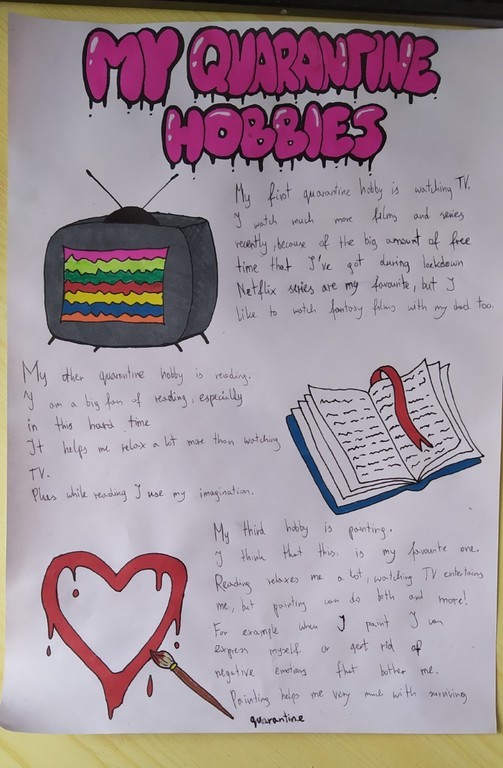 MY QUARANTINE
HOBBIES
My first quarantine hobby is watching TV.
I watch much more films and series
recently, because of the big amount of free
time that I've got during lockdown
Netflix series are my favourite, but I
like to watch fantasy films with my dad too.
My other quarantine hobby is reading.
I am a big fan of reading, especially
in this hard time
It helps me relax a lot more than watching
TV.
Plus while reading I use my imagination.
My third hobby is painting.
I think that this is my favourite one.
Reading relaxes me a lot, watching TV entertains
me, but painting can do both and more!
For example when I paint I can
express myself or get rid of
negative emotions that bother me.
Painting helps me very much with surviving
quarantine